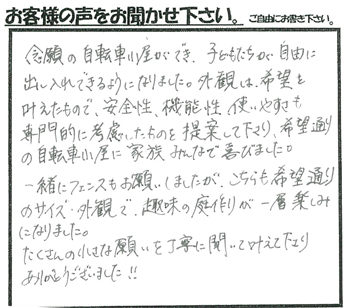 お客様の声をお聞かせ下さい。ご自由にお書き下さい。
念願の自転車小屋ができ、子どもたちが自由に
出し入れできるようになりました。外観は、希望を
叶えたもので、安全性、機能性、使いやすさも
専門的に考慮したものを提案して下さり、希望通り
の自転車小屋に家族みんなで喜びました。
一緒にフェンスもお願いしましたが、こちらも希望通り
のサイズ・外観で、趣味の庭作りが一層楽しみ
になりました。
たくさんの小さな願いを丁寧に聞いて叶えて下さり
ありがとうございました!!